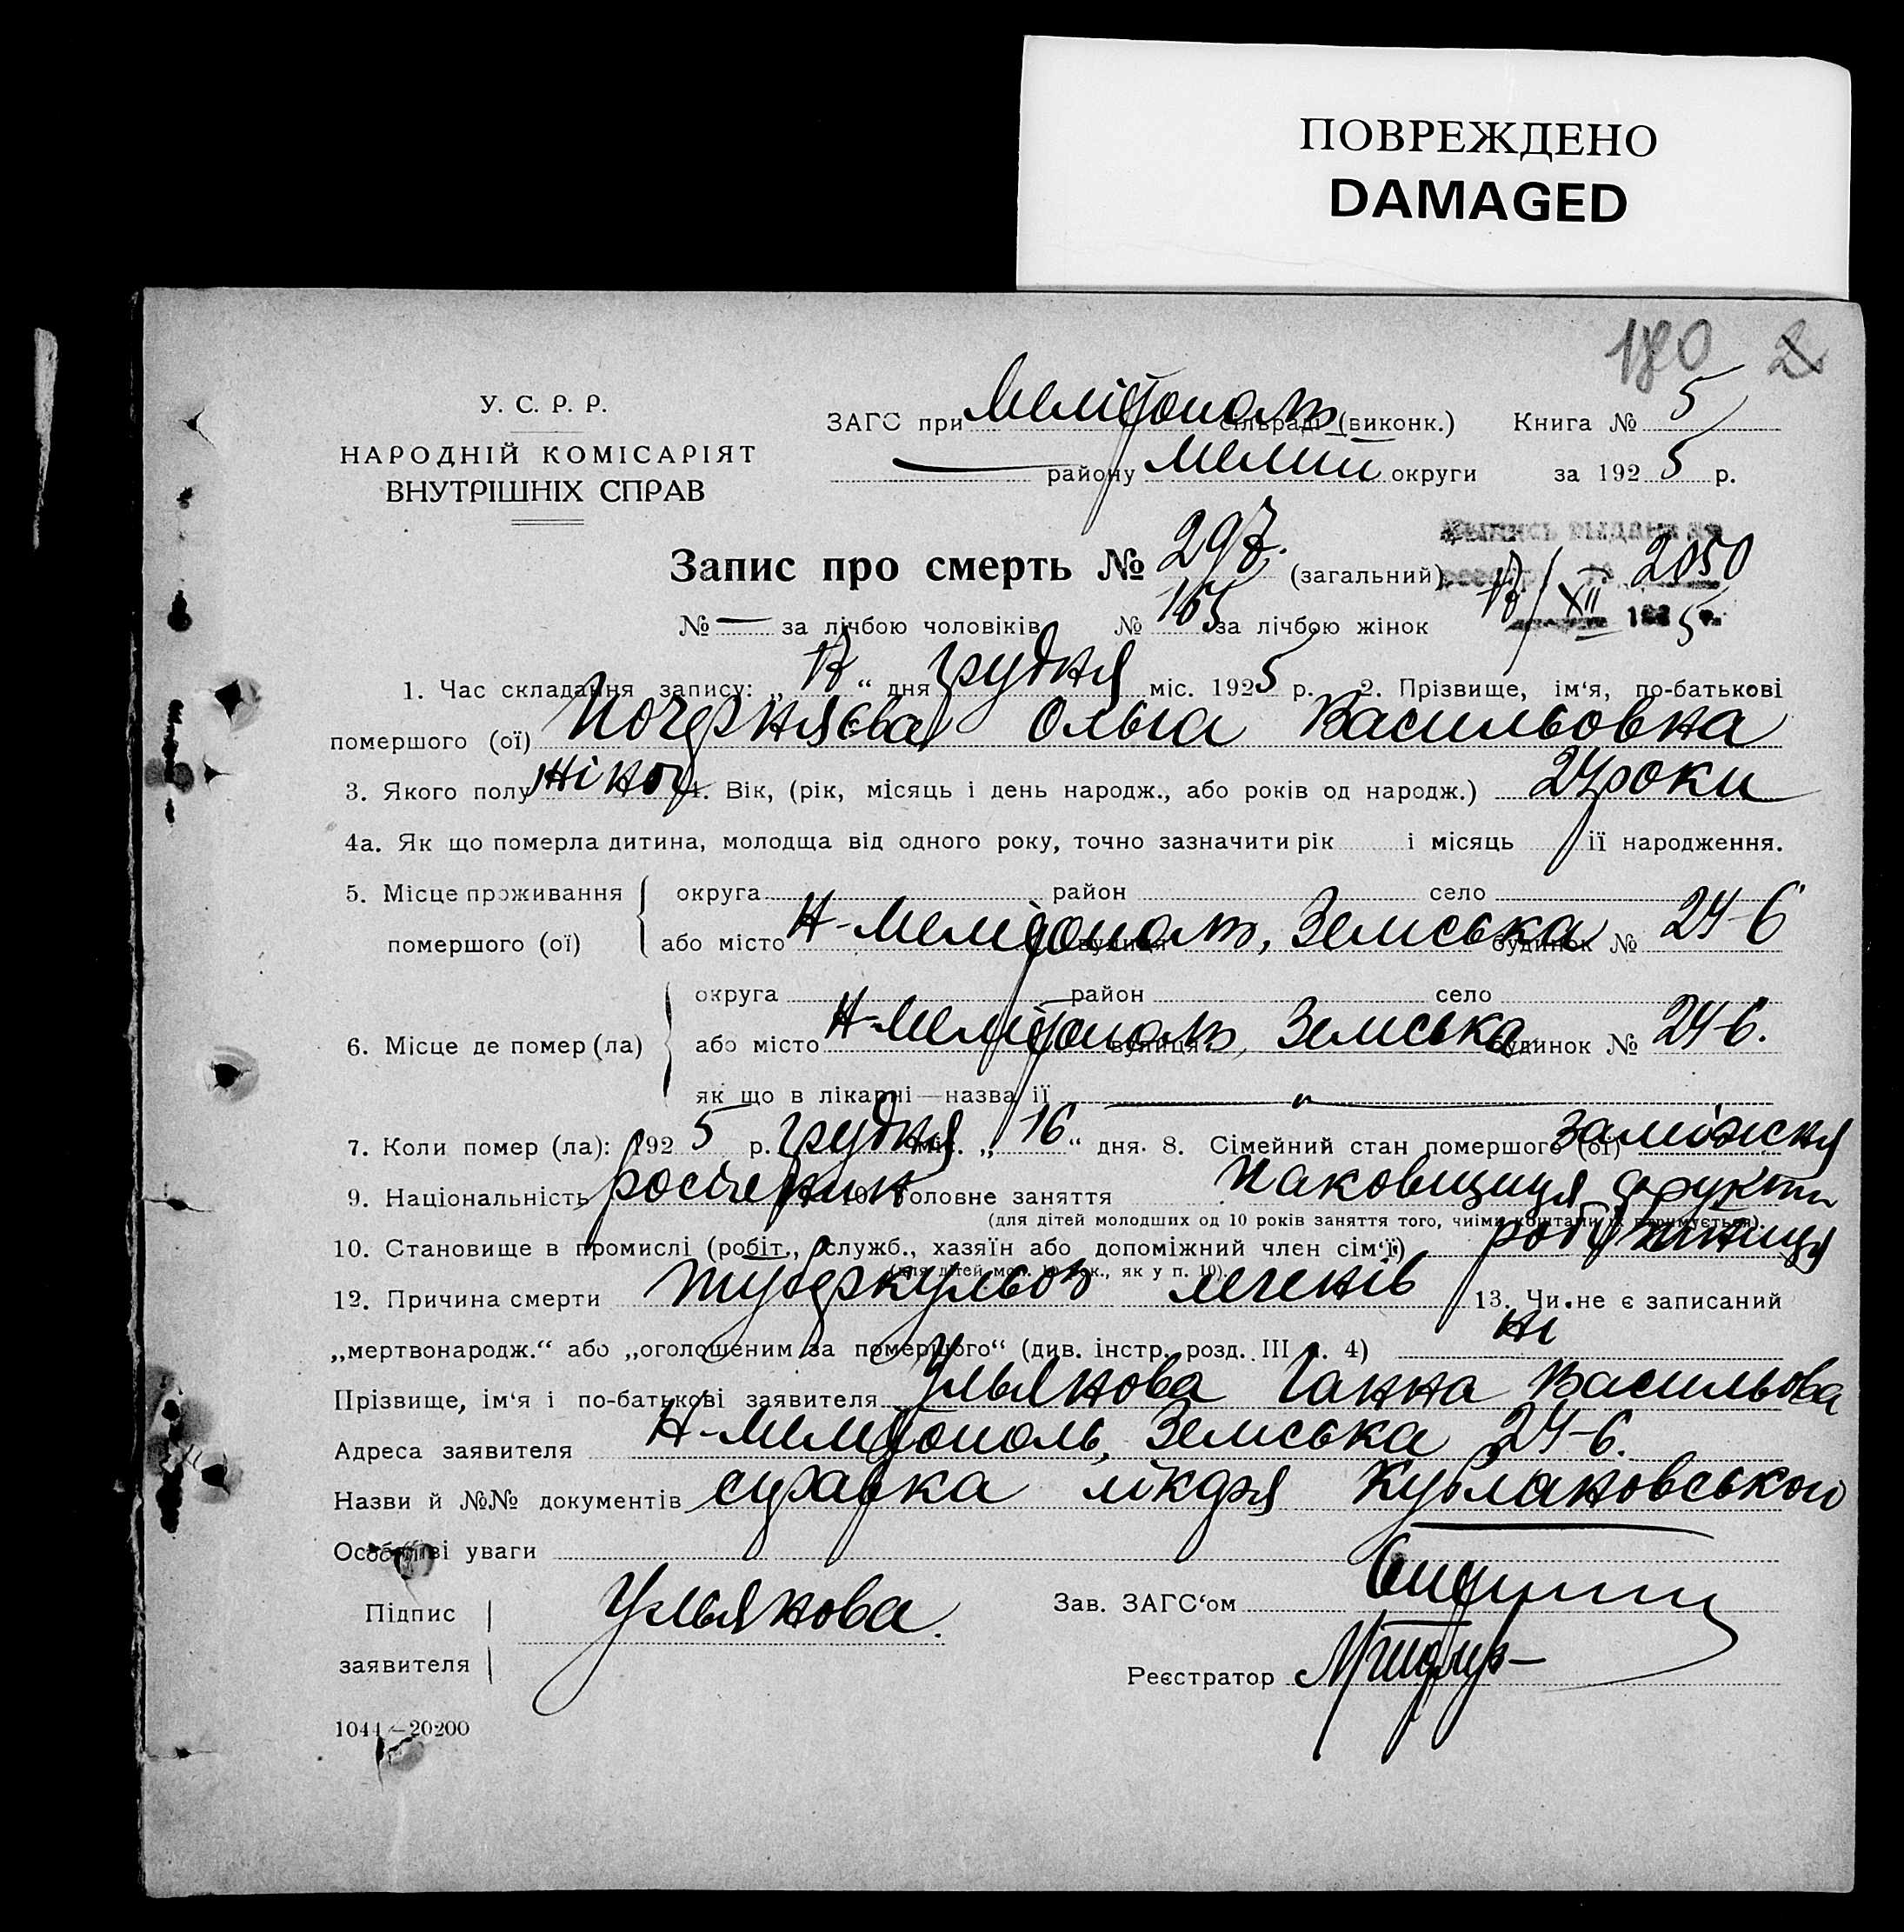 ПОВРЕЖДЕНО
DAMAGED
180 2
У. С. Р. Р.
НАРОДНІЙ КОМІСАРІЯТ
ВНУТРІШНІХ СПРАВ
ЗАГС при Мелітополь сільраді (виконк.) Книга № 5
— району Мелит округи за 1925 р.
Запис про смерть № 297. (загальний)
Выпись выдана за 2050
17/XII 1925 г.
№ — за лічбою чоловіків № 165 за лічбою жінок
1. Час складання запису: „ 17 “ дня грудня міс. 1925 р. 2. Прізвище, ім‘я, по-батькові
помершого (ої) Ольга Васильовна
3. Якого полу жіноч 4. Вік, (рік, місяць і день народж., або років од народж.) 24 роки
4а. Як що померла дитина, молодща від одного року, точно зазначити рік і місяць її народження.
5. Місце проживання округа район село
помершого (ої) або місто Н-Мелітополь, вулиця Земська будинок № 24-б
округа район село
6. Місце де помер (ла) або місто Н-Мелітополь, вулиця Земська будинок № 24-б.
як що в лікарні—назва її — „ —
7. Коли помер (ла): 1925 р. грудня міс. „ 16 “ дня. 8. Сімейний стан помершого (ої) заміжня
9. Національність 10. Головне заняття паковщиця фрукт
(для дітей молодших од 10 років заняття того, чиїми коштами їх утримується).
10. Становище в промислі (робіт., служб., хазяїн або допоміжний член сім‘ї) робітниця
(для дітей мол. 10 рок., як у п. 10).
12. Причина смерти туберкульоз легенів 13. Чи не є записаний
„мертвонародж.“ або „оголошеним за померщого“ (див. інстр. розд. III п. 4) ні
Прізвище, ім‘я і по-батькові заявителя Ульянова Ганна Васильова
Адреса заявителя Н-Мелітополь, Земська 24-б.
Назви й №№ документів лікаря
Особливі уваги
Підпис
заявителя
Ульянова.
Зав. ЗАГС‘ом
Реєстратор
1044—20200